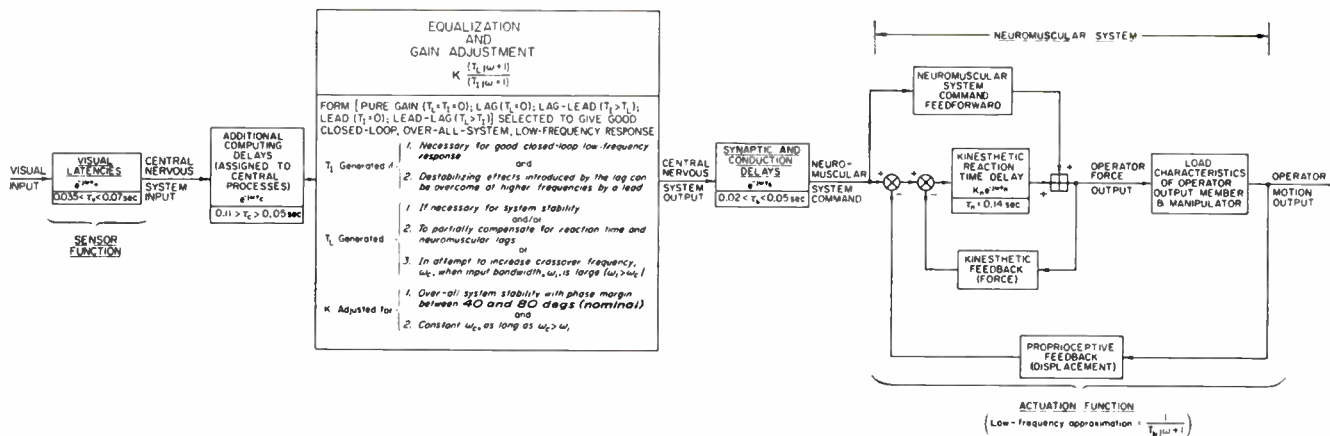 VISUAL
INPUT
VISUAL
LATENCIES
e^-jωτₐ
SENSOR
FUNCTION
CENTRAL
NERVOUS
SYSTEM
INPUT
ADDITIONAL
COMPUTING
DELAYS
(ASSIGNED TO
CENTRAL
PROCESSES)
e^-jωτc
0.11 > τc > 0.05 sec
EQUALIZATION
AND
GAIN ADJUSTMENT
K (T_L jω+1)/(T_I jω+1)
FORM [PURE GAIN (T_L=T_I=0); LAG (T_L=0); LAG-LEAD (T_I>T_L);
LEAD (T_I=0); LEAD-LAG (T_L>T_I)] SELECTED TO GIVE GOOD
CLOSED-LOOP, OVER-ALL-SYSTEM, LOW-FREQUENCY RESPONSE
T_I Generated if
1. Necessary for good closed-loop low-frequency
response
and
2. Destabilizing effects introduced by the lag can
be overcome at higher frequencies by a lead
T_L Generated
1. If necessary for system stability
and/or
2. To partially compensate for reaction time and
neuromuscular lags
or
3. In attempt to increase crossover frequency,
ω_c, when input bandwidth, ω_i, is large (ω_i>ω_c)
K Adjusted for
1. Over-all system stability with phase margin
between 40 and 80 degs (nominal)
and
2. Constant ω_c, as long as ω_c>ω_i
CENTRAL
NERVOUS
SYSTEM
OUTPUT
SYNAPTIC AND
CONDUCTION
DELAYS
0.02 < τb < 0.05 sec
NEURO-
MUSCULAR
SYSTEM
COMMAND
NEUROMUSCULAR SYSTEM
NEUROMUSCULAR
SYSTEM
COMMAND
FEEDFORWARD
+
-
+
-
KINESTHETIC
REACTION
TIME DELAY
K_n e^-jωτn
τn = 0.14 sec
+
+
KINESTHETIC
FEEDBACK
(FORCE)
OPERATOR
FORCE
OUTPUT
LOAD
CHARACTERISTICS
OF OPERATOR
OUTPUT MEMBER
& MANIPULATOR
OPERATOR
MOTION
OUTPUT
PROPRIOCEPTIVE
FEEDBACK
(DISPLACEMENT)
ACTUATION FUNCTION
(Low-frequency approximation = 1/(T_N jω+1))